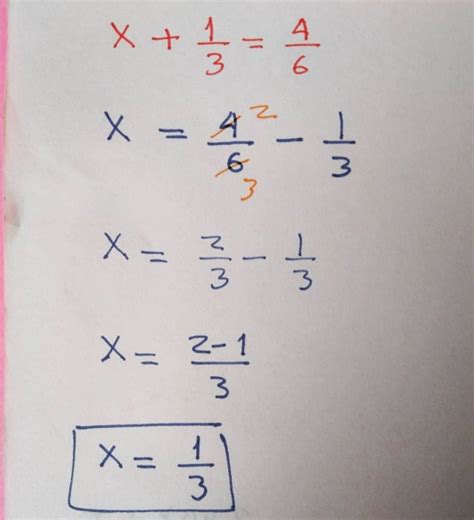 x + 1/3 = 4/6
x = 4/6 2/3 - 1/3
x = 2/3 - 1/3
x = 2-1/3
x = 1/3